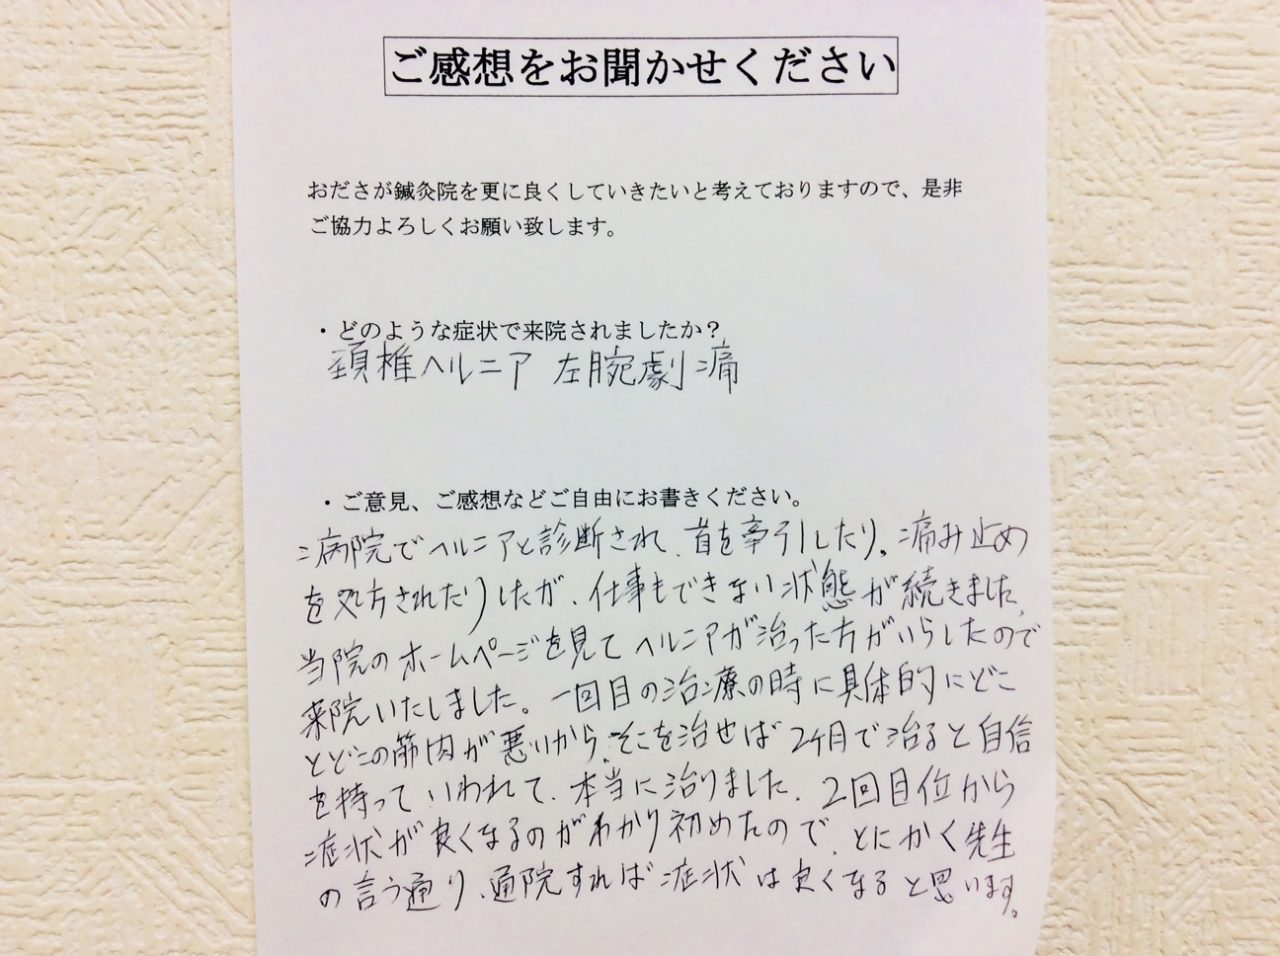 ご感想をお聞かせください
おださが鍼灸院を更に良くしていきたいと考えておりますので、是非
ご協力よろしくお願い致します。
・どのような症状で来院されましたか？
頚椎ヘルニア 左腕劇痛
・ご意見、ご感想などご自由にお書きください。
病院でヘルニアと診断され、首を牽引したり、痛み止め
を処方されたりしたが、仕事もできない状態が続きました、
当院のホームページを見てヘルニアが治った方がいらしたので
来院いたしました。一回目の治療の時に具体的にどこ
とどこの筋肉が悪いから、そこを治せば2ヶ月で治ると自信
を持っていわれて、本当に治りました、2回目位から
症状が良くなるのがわかり初めたので、とにかく先生
の言う通り、通院すれば症状は良くなると思います。